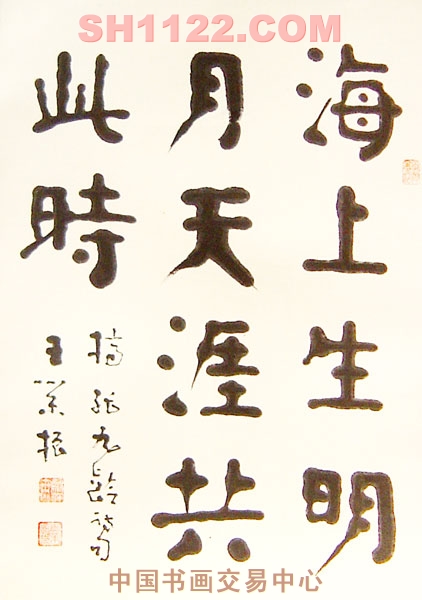 SH1122.COM
海上生明
月天涯共
此時
摘張九齡詩句
中国书画交易中心